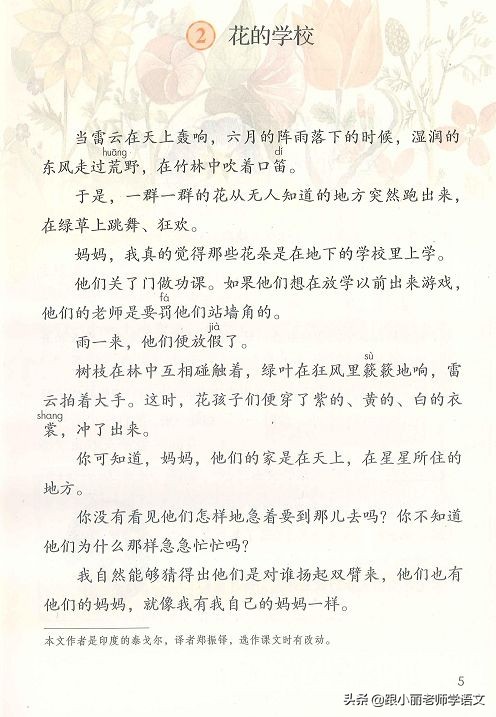 2 花的学校
当雷云在天上轰响，六月的阵雨落下的时候，湿润的
huāng dí
东风走过荒野，在竹林中吹着口笛。
于是，一群一群的花从无人知道的地方突然跑出来，
在绿草上跳舞、狂欢。
妈妈，我真的觉得那些花朵是在地下的学校里上学。
他们关了门做功课。如果他们想在放学以前出来游戏，
fá
他们的老师是要罚他们站墙角的。
jià
雨一来，他们便放假了。
sù
树枝在林中互相碰触着，绿叶在狂风里簌簌地响，雷
云拍着大手。这时，花孩子们便穿了紫的、黄的、白的衣
shang
裳，冲了出来。
你可知道，妈妈，他们的家是在天上，在星星所住的
地方。
你没有看见他们怎样地急着要到那儿去吗？你不知道
他们为什么那样急急忙忙吗？
我自然能够猜得出他们是对谁扬起双臂来，他们也有
他们的妈妈，就像我有我自己的妈妈一样。
本文作者是印度的泰戈尔，译者郑振铎，选作课文时有改动。
5
头条 @跟小丽老师学语文